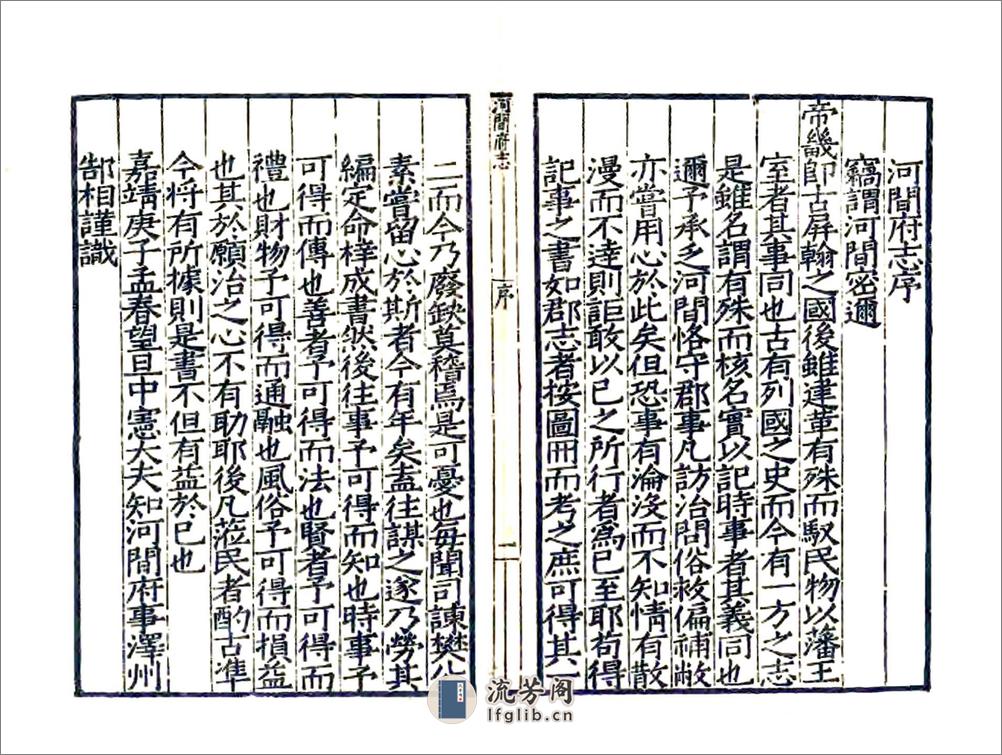 河間府志序
竊謂河間密邇
帝畿師古屏翰之國後雖建革有殊而馭民物以藩王
室者其事同也古有列國之史而今有一方之志
是雖名謂有殊而核名實以記時事者其義同也
邇予承乏河間恪守郡事凡訪治問俗救偏補敝
亦嘗用心於此矣但恐事有淪沒而不知情有散
漫而不達則詎敢以己之所行者爲已至耶苟得
記事之書如郡志者按圖冊而考之庶可得其一
河間府志
序
一
二而今乃廢缺莫稽焉是可憂也每聞司諫樊公
素嘗留心於斯者今有年矣盍往謀之遂乃勞其
編定命梓成書然後往事予可得而知也時事予
可得而傳也善者予可得而法也賢者予可得而
禮也財物予可得而通融也風俗予可得而損益
也其於願治之心不有助耶後凡蒞民者酌古準
今將有所據則是書不但有益於已也
嘉靖庚子孟春望旦中憲大夫知河間府事澤州
郜相謹識
流芳阁
lfglib.cn